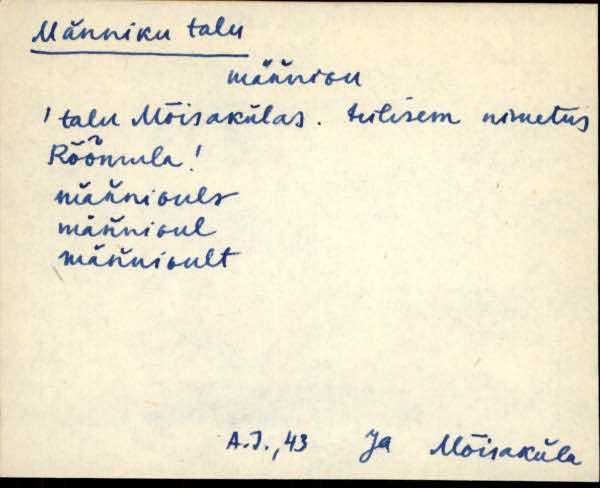 Männiku talu
männiou
! talu Mõisakülas. tulisem nimetus
Rõõmula!
männioule
männioul
männioult
A.J., 43 Jä Mõisaküla